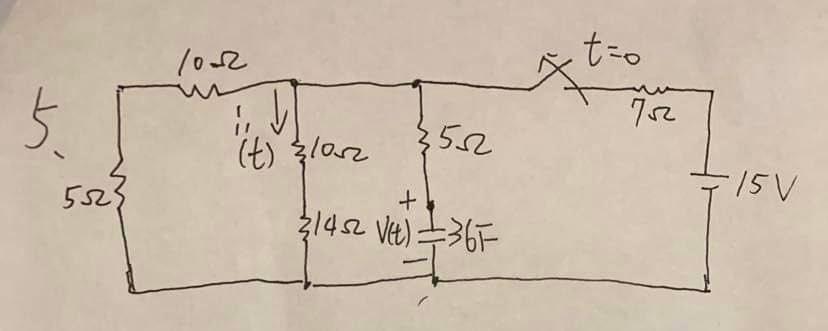 5.
10Ω
t=0
7Ω
i,
(t)
10Ω
5Ω
5Ω
15V
14Ω
+
V(t)
36F
−